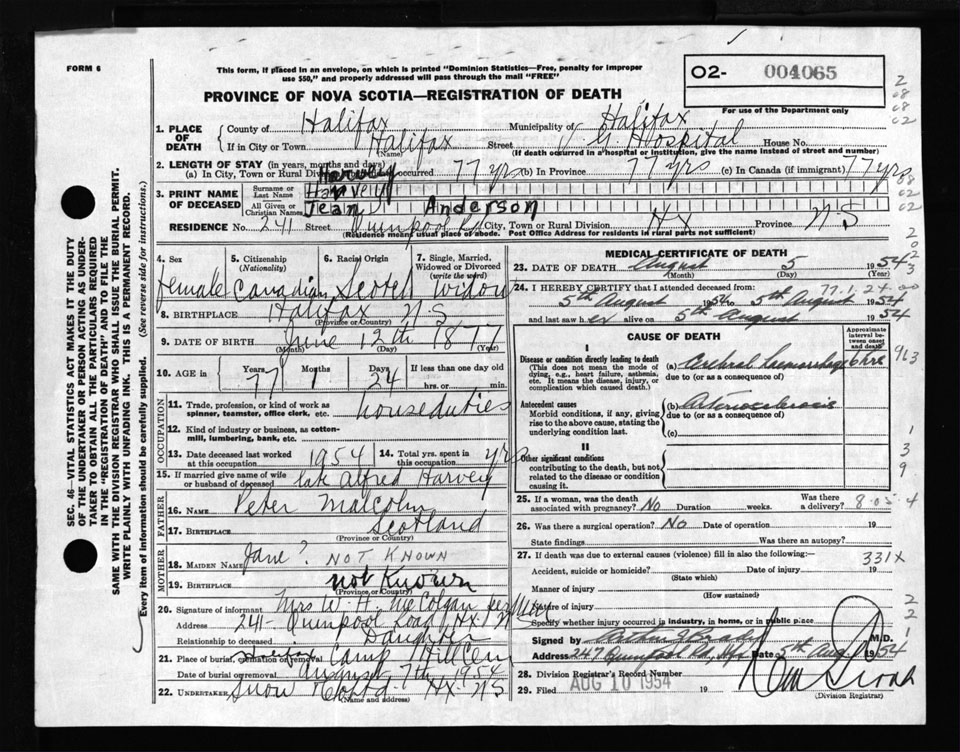 FORM 6
This form, if placed in an envelope, on which is printed "Dominion Statistics—Free, penalty for improper
use $50," and properly addressed will pass through the mail "FREE"
O2- 004065
For use of the Department only
PROVINCE OF NOVA SCOTIA—REGISTRATION OF DEATH
1. PLACE OF DEATH
County of Halifax Municipality of Halifax
If in City or Town Halifax Street G Hospital House No.
(Name) (If death occurred in a hospital or institution, give the name instead of street and number)
2. LENGTH OF STAY (in years, months and days)
(a) In City, Town or Rural Div occurred 77 yrs (b) In Province 77 yrs (c) In Canada (if immigrant) 77 yrs
Harvey
3. PRINT NAME OF DECEASED
Surname or Last Name Harvey
All Given or Christian Names Jean Anderson
RESIDENCE No. 241 Street Quinpool Rd City, Town or Rural Division HX Province N.S
(Residence means usual place of abode. Post Office Address for residents in rural parts not sufficient)
4. Sex female
5. Citizenship (Nationality) Canadian
6. Racial Origin Scotch
7. Single, Married, Widowed or Divorced (write the word) widow
8. BIRTHPLACE Halifax N.S
(Province or Country)
9. DATE OF BIRTH June 12th 1877
(Month) (Day) (Year)
10. AGE in Years 77 Months 1 Days 24 If less than one day old
hrs. or min.
OCCUPATION
11. Trade, profession, or kind of work as spinner, teamster, office clerk, etc. houseduties
12. Kind of industry or business, as cotton-mill, lumbering, bank, etc.
13. Date deceased last worked at this occupation 1954 14. Total yrs. spent in this occupation yrs
15. If married give name of wife or husband of deceased late Alfred Harvey
FATHER
16. NAME Peter Malcolm
17. BIRTHPLACE Scotland
(Province or Country)
MOTHER
18. MAIDEN NAME Jane? NOT KNOWN
19. BIRTHPLACE not Known
(Province or Country)
20. Signature of informant Mrs W. H. McColgan per
Address 241- Quinpool Road Hx. N.S
Relationship to deceased Daughter
21. Place of burial, cremation or removal Halifax Camp Hill Cem
Date of burial or removal August 7th 1954
22. Undertaker Snow & Co Ltd. HX. N.S
(Name and address)
MEDICAL CERTIFICATE OF DEATH
23. DATE OF DEATH August 5 1954
(Month) (Day) (Year)
24. I HEREBY CERTIFY that I attended deceased from: 77.1.24.00
5th August 1954 to 5th August 1954
and last saw her alive on 5th August 1954
CAUSE OF DEATH
Approximate interval between onset and death
I
Disease or condition directly leading to death
(This does not mean the mode of dying, e.g., heart failure, asthma, etc. It means the disease, injury, or complication which caused death.)
(a) Cerebral haemorrhage 6 hrs
due to (or as a consequence of)
Antecedent causes
Morbid conditions, if any, giving rise to the above cause, stating the underlying condition last.
(b) Arteriosclerosis
due to (or as a consequence of)
(c)
II
Other significant conditions
contributing to the death, but not related to the disease or condition causing it.
25. If a woman, was the death associated with pregnancy? No Duration weeks. Was there a delivery? 8.05.4
26. Was there a surgical operation? No Date of operation 19
State findings Was there an autopsy?
27. If death was due to external causes (violence) fill in also the following: 331X
Accident, suicide or homicide? Date of injury 19
(State which)
Manner of injury
(How sustained)
Nature of injury
Specify whether injury occurred in industry, in home, or in public place
Signed by M.D.
Address 247 Quinpool Rd, Hfx Date 5th Aug. 1954
28. Division Registrar's Record Number
29. Filed AUG 10 1954 19
(Division Registrar)
SEC. 46—VITAL STATISTICS ACT MAKES IT THE DUTY
OF THE UNDERTAKER OR PERSON ACTING AS UNDER-
TAKER TO OBTAIN ALL THE PARTICULARS REQUIRED
IN THE "REGISTRATION OF DEATH" AND TO FILE THE
SAME WITH THE DIVISION REGISTRAR WHO SHALL ISSUE THE BURIAL PERMIT.
WRITE PLAINLY WITH UNFADING INK. THIS IS A PERMANENT RECORD.
Every item of information should be carefully supplied. (See reverse side for instructions.)